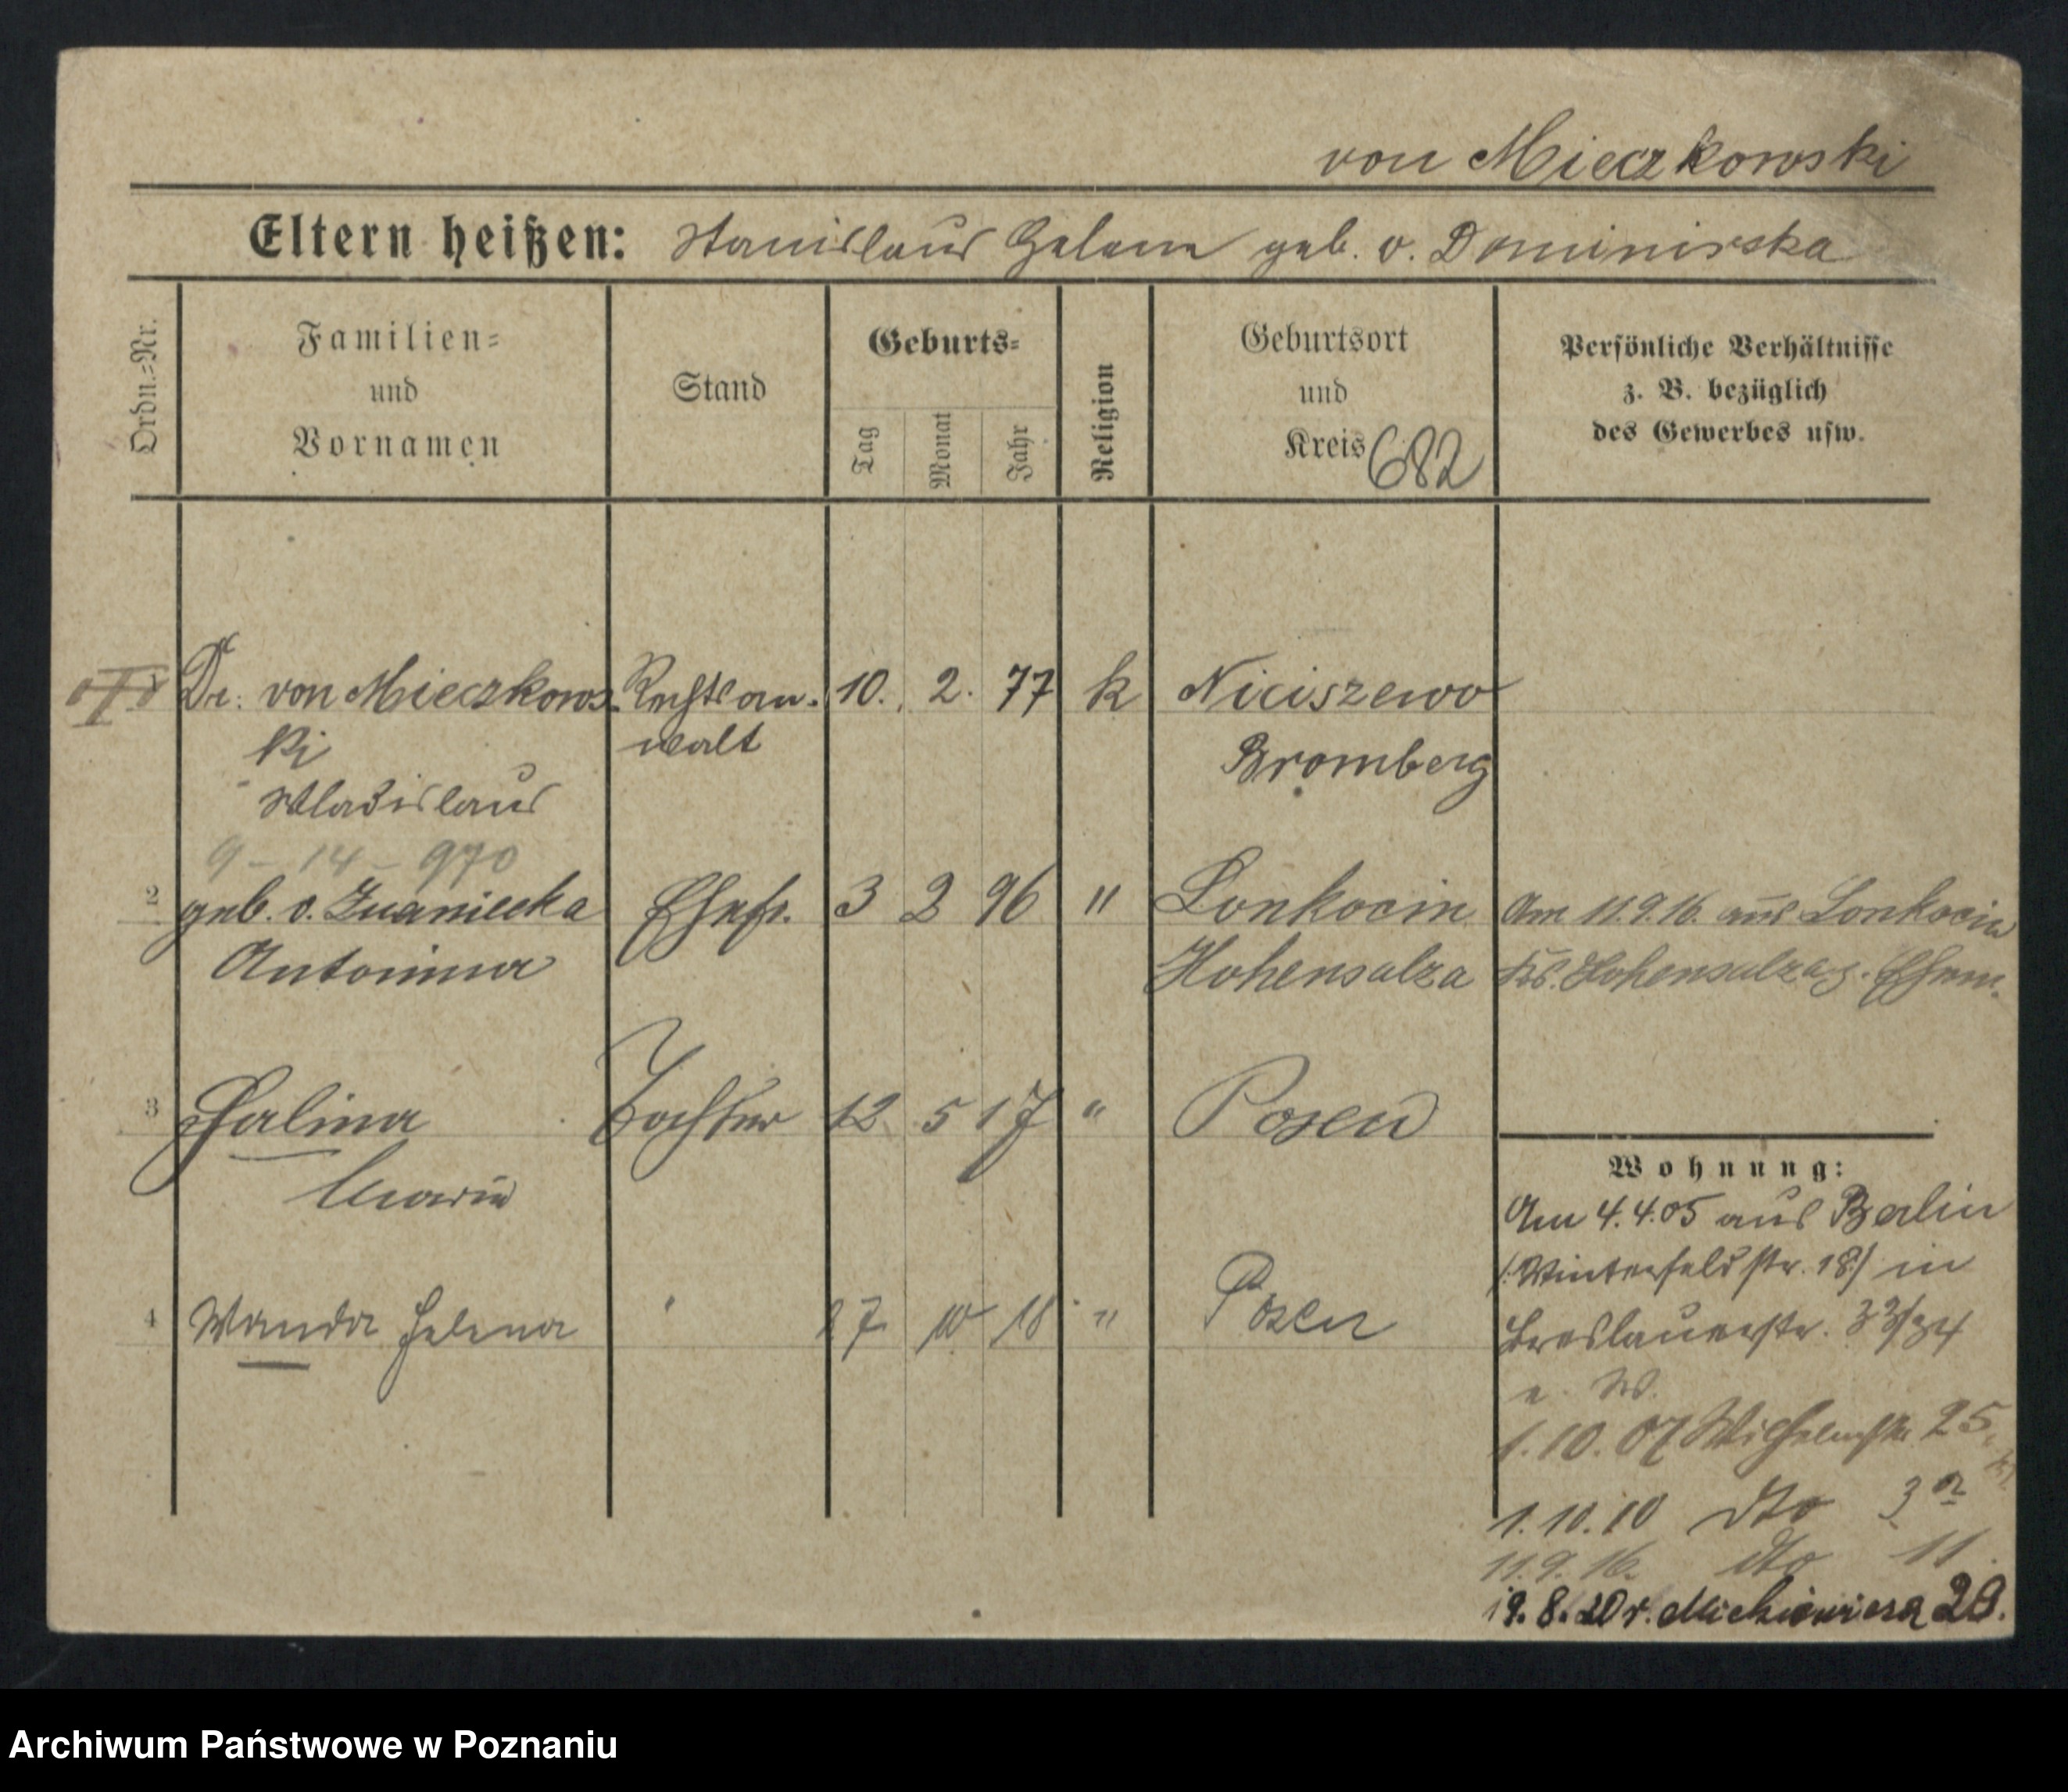 von Mieczkowski
Eltern heißen: Stanislaus Helene geb. v. Dominirska
Ordn.-Nr.
Familien-
und
Vornamen
Stand
Geburts-
Tag
Monat
Jahr
Religion
Geburtsort
und
Kreis 682
Persönliche Verhältnisse
z. B. bezüglich
des Gewerbes usw.
Dr. von Mieczkows- Rechtsan- 10. 2. 77 k Niciszewo
ki walt Bromberg
Wladislaus
9 - 14 - 970
2 geb. v. Znaniecka Ehefr. 3 2 96 " Lonkocin Am 11.9.16. aus Lonkocin
Antonina Hohensalza Krs. Hohensalza z. Ehem.
3 Halina Tochter 12 5 17 " Posen
Maria
Wohnung:
Am 4.4.05 aus Berlin
/: Winterfeldstr. 18 :/ in
4 Wanda Helena " 27 10 18 " Posen
Breslauerstr. 33/34
n. W.
1.10.07 Wilhelmstr. 25
1.10.10 dto 3a
11.9.16. dto 11
19.8.20 r. Mickiewicza 28.
Archiwum Państwowe w Poznaniu